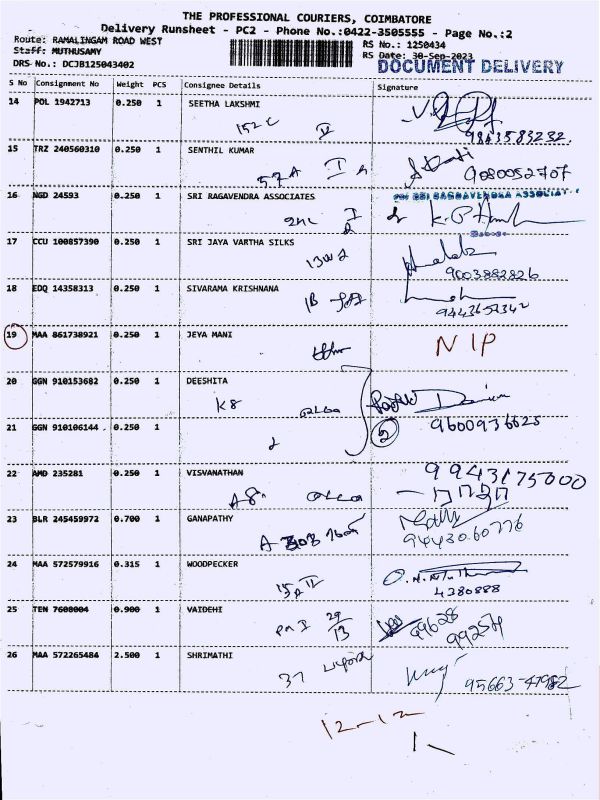 THE PROFESSIONAL COURIERS, COIMBATORE
Delivery Runsheet - PC2 - Phone No.:0422-3505555 - Page No.:2
Route: RAMALINGAM ROAD WEST
RS No.: 1250434
Staff: MUTHUSAMY
RS Date: 30-Sep-2023
DRS No.: DCJB125043402
DOCUMENT DELIVERY
S No Consignment No Weight PCS Consignee Details Signature
14 POL 1942713 0.250 1 SEETHA LAKSHMI
152 C
9843583232
15 TRZ 240560310 0.250 1 SENTHIL KUMAR
57A I
9080052707
16 NGD 24593 0.250 1 SRI RAGAVENDRA ASSOCIATES
17 CCU 100857390 0.250 1 SRI JAYA VARTHA SILKS
9003882826
18 EDQ 14358313 0.250 1 SIVARAMA KRISHNANA
1B
9443657342
19 MAA 861738921 0.250 1 JEYA MANI
NIP
20 GGN 910153682 0.250 1 DEESHITA
K8
21 GGN 910106144 0.250 1
2
9600936625
22 AMD 235281 0.250 1 VISVANATHAN
A8
9943175000
23 BLR 245459972 0.700 1 GANAPATHY
A 303
94430.60776
24 MAA 572579916 0.315 1 WOODPECKER
15A II
4380888
25 TEN 7608004 0.900 1 VAIDEHI
29/13
99628
99254
26 MAA 572265484 2.500 1 SHRIMATHI
37
95663-47982
12-12